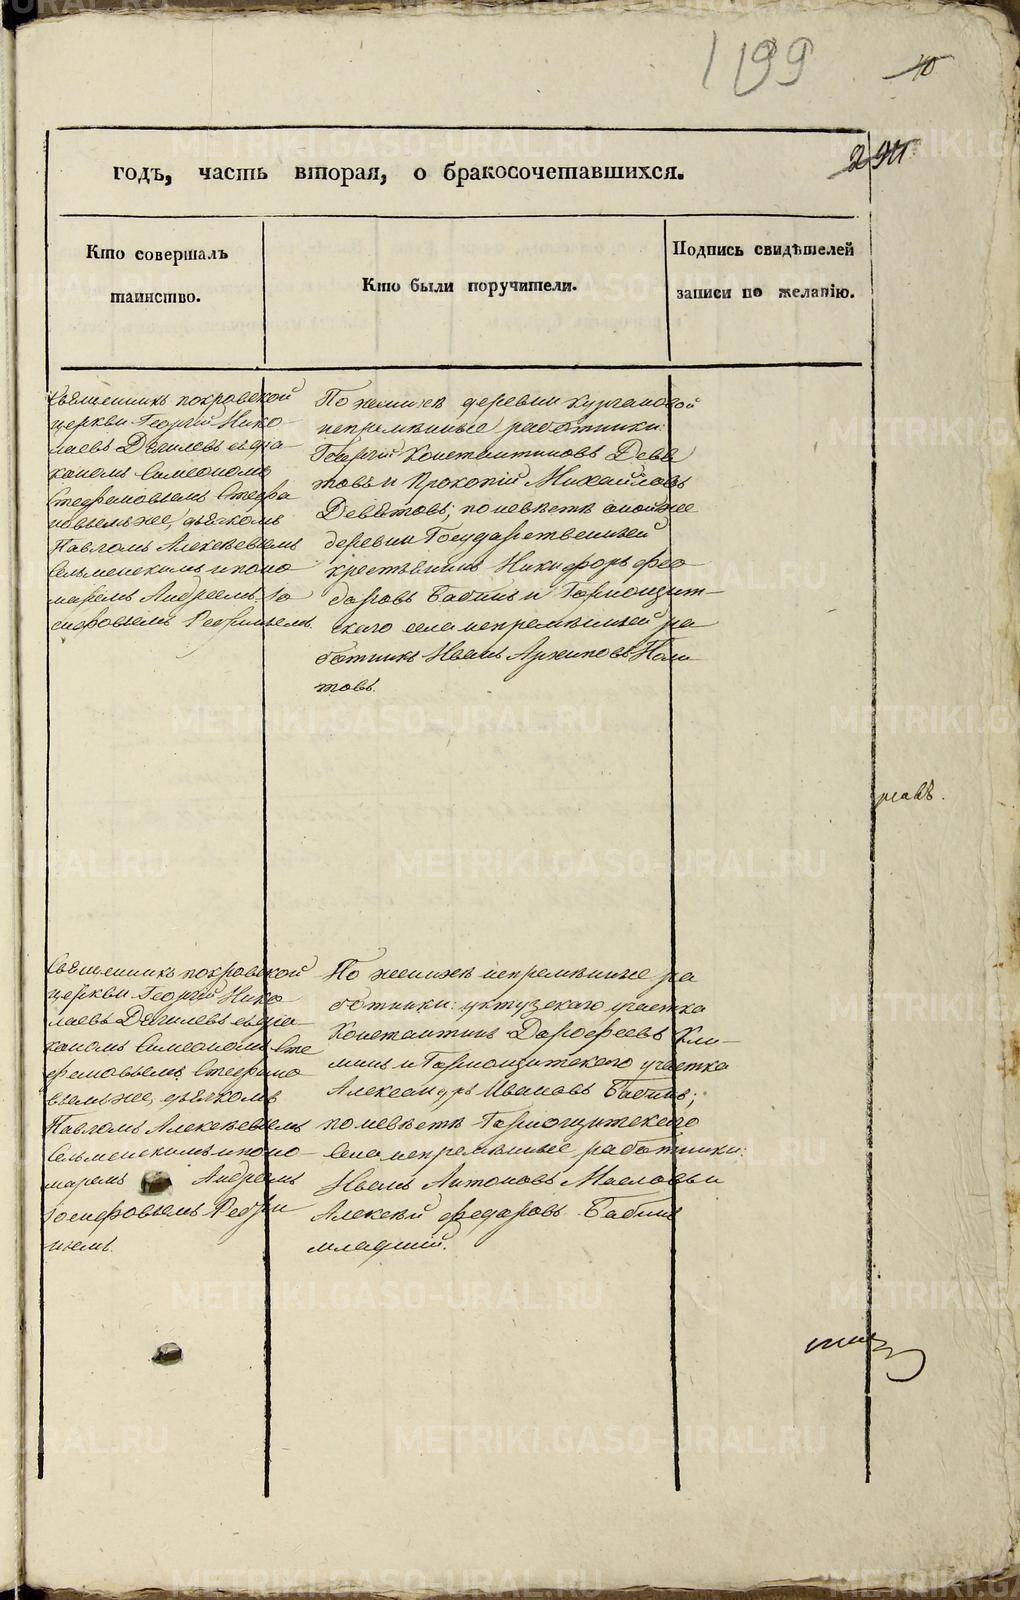 199
годъ, часть вторая, о бракосочетавшихся.
Кто совершалъ
таинство.
Кто были поручители.
Подпись свидѣтелей
записи по желанію.
Священникъ покровской
церкви Георгій Нико
лаевъ Дягилевъ съ діа
кономъ Симеономъ
Стефановымъ Стефа
новымъ же, дьячкомъ
Павломъ Алексѣевымъ
Сельменскимъ и поно
маремъ Андреемъ Іо
сифовымъ
По женихѣ деревни Кургановой
непремѣнные работники:
Георгій Константиновъ Девя
товъ и Прокопій Михайловъ
Девятовъ; по невѣстѣ оной же
деревни Государственный
крестьянинъ Никифоръ Фео
доровъ Бабинъ и Горнощит-
скаго села непремѣнный ра
ботникъ Иванъ Архиповъ Поли
товъ.
Священникъ покровской
церкви Георгій Нико
лаевъ Дягилевъ съ діа-
кономъ Симеономъ Сте
фановымъ Стефано
вымъ же, дьячкомъ
Павломъ Алексѣевымъ
Сельменскимъ и поно-
маремъ Андреемъ
Іосифовымъ
По женихѣ непремѣнные ра
ботники: уктузскаго участка
Константинъ Дорофеевъ Кли-
минъ и Горнощитскаго участка
Александръ Ивановъ Бабинъ;
по невѣстѣ Горнощитскаго
села непремѣнные работники:
Иванъ Антоновъ Масловъ и
Алексѣй Федоровъ Бабинъ
младшій.
METRIKI.GASO-URAL.RU